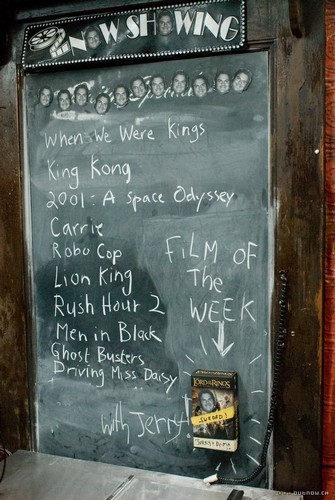 NOW SHOWING
When We Were Kings
King Kong
2001: A Space Odyssey
Carrie
Robo Cop
Lion King
Rush Hour 2
Men in Black
Ghost Busters
Driving Miss Daisy
FiLM OF
The
WEEK
with Jerry!
LORD OF THE RINGS
SWEDED!